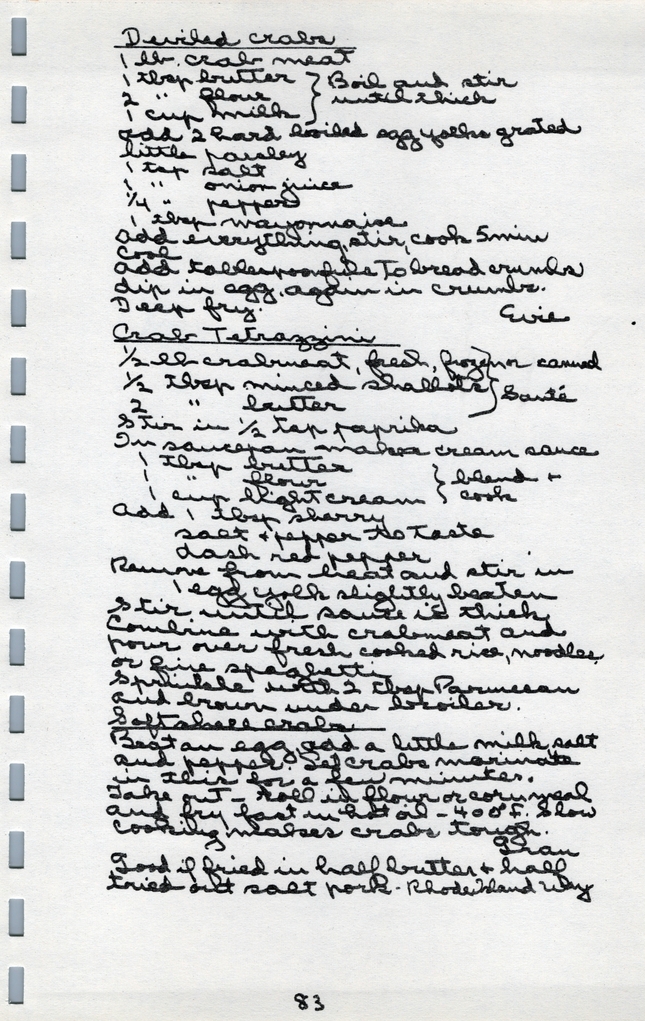 Deviled crabs
1 lb. crab meat
1 tbsp butter } Boil and stir
2 " flour } until thick
1 cup milk }
add 2 hard boiled egg yolks grated
little parsley
1 tsp salt
1 " onion juice
1/4 " pepper
1 tbsp mayonnaise
add everything, stir, cook 5 min
Cool
add tablespoonfuls to bread crumbs
dip in egg, again in crumbs.
Deep fry.
Evie
Crab Tetrazzini
1/2 lb crabmeat, fresh, frozen or canned
1/2 tbsp minced shallots } Sauté
2 " butter
Stir in 1/2 tsp paprika
In saucepan make a cream sauce
1 tbsp butter
1 " flour } blend +
1 cup light cream } cook
add 1 tbsp sherry
salt + pepper to taste
dash red pepper
Remove from heat and stir in
1 egg yolk slightly beaten
Stir until sauce is thick.
Combine with crabmeat and
pour over fresh cooked rice, noodles
or fine spaghetti
Sprinkle with 2 tbsp Parmesan
and brown under broiler.
Softshell crabs
Beat an egg, add a little milk, salt
and pepper. Let crabs marinate
in this for a few minutes.
Take out - roll in flour or cornmeal
and fry fast in hot oil - 400°F. Slow
cooking makes crabs tough.
Gran
Good if fried in half butter + half
tried out salt pork - Rhode Island Way
83